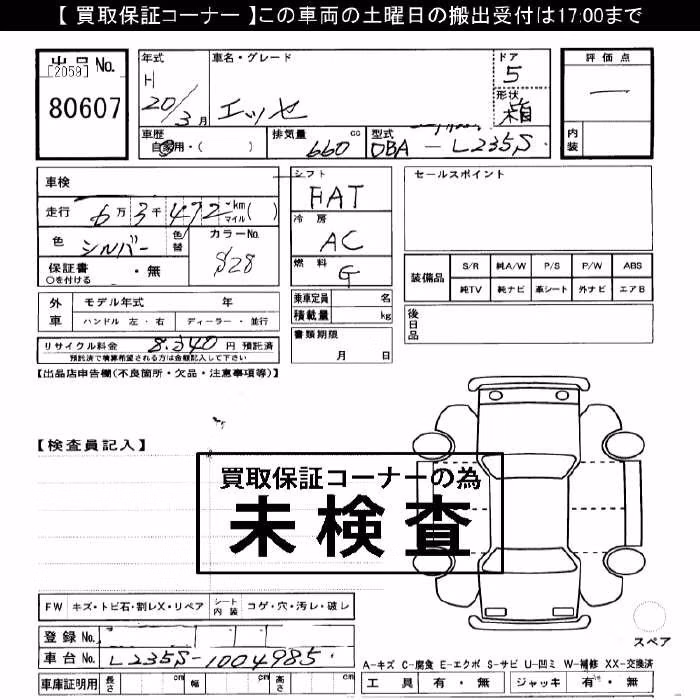 【 買取保証コーナー 】この車両の土曜日の搬出受付は17:00まで
出品 No.
[2059]
80607
年式
H
20/3月
車名・グレード
エッセ
ドア
5
形状
箱
評価点
—
内装
車歴
自家用・( )
排気量 cc
660
型式
DBA - L235S
車検
走行 6万 3千 472 km マイル ( )
色
シルバー
色替
カラーNo.
S28
保証書 ・無
○を付ける
シフト
FAT
冷房
AC
燃料
G
乗車定員 名
積載量 kg
書類期限
月 日
セールスポイント
装備品
S/R 純A/W P/S P/W ABS
純TV 純ナビ 革シート 外ナビ エアB
後日品
外車
モデル年式 年
ハンドル 左・右 ディーラー・並行
リサイクル料金 8,340 円 預託済
預託済で積算希望される方は金額記入して下さい
【出品店申告欄(不良箇所・欠品・注意事項等)】
【検査員記入】
買取保証コーナーの為
未検査
FW キズ・トビ石・割レX・リペア シート内装 コゲ・穴・汚レ・破レ
登録No.
車台No. L235S-1004985
車庫証明用 長さ cm 幅 cm 高さ cm
スペア
A-キズ C-腐食 E-エクボ S-サビ U-凹ミ W-補修 XX-交換済
工具 有・無 ジャッキ 有・無